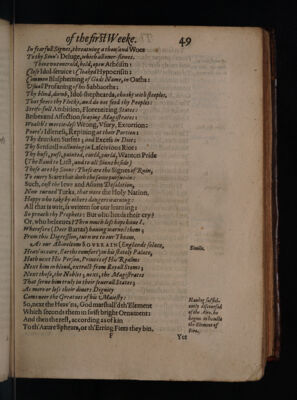 of the first Weeke.
49
In fearfull Signes, threatning a thousand Woes
To thy Sinn's Deluge, which all over-flowes.
Thine uncontrold, bold, open Atheism:
Close Idol-seruice: Cloaked Hypocrism:
Common Blaspheming of Gods Name, in Oaths:
Usuall Profaning of his Sabbaoths:
Thy blind, dumb, Idol-shepheards, choakt with steeples,
That fleece thy Flocks, and do not feed thy Peoples:
Strife-full Ambition, Florentizing States:
Bribes and Affection swaying Magistrates:
Wealth's mercilesse Wrong, Usury, Extortion:
Poore's Idlenes, Repining at their Portion:
Thy drunken Surfets; and Excesse in Diet:
Thy Sensuall wallowing in Lascivious Riot:
Thy huft, puft, painted, curld, purld, Wanton Pride
(The Baud to Lust, and to all Sinns beside)
These are thy Sinns: These are the Signes of Ruin,
To every State that doth the same pursue-in:
Such, cost the Iews and Asians Desolation,
Now turned Turks, that were the Holy Nation.
Happy who take by others dangers warning:
All that is writ, is written for our learning:
So preach thy Prophets: But who heeds their cry?
Or, who beleeves? Then much less hope have I.
Wherefore (Deer Bartas) having warned them;
From this Digression, turn we to our Theam.
As our All-welcom SOVERAIN (Englands solace,
Heav'ns care, Earths comfort) in his stately Palace,
Hath next His Person, Princes of His Realms
Next him in blood, extract from Royall Stems;
Next those, the Nobles; next, the Magistrates
That serve him truly in their severall States;
As more or less their divers Dignity
Coms neer the Greatnes of his Majesty:
So, next the Heav'ns, God marshall'd th'Element
Which seconds them in swift bright Ornament:
And then the rest, according as of kin
To th'Azure Sphears, or th'Erring Fiers they bin.
Simile.
Hauing sufficiently
discoursed
of the Aire, he
begins to handle
the Element of
Fire.
F
Yet